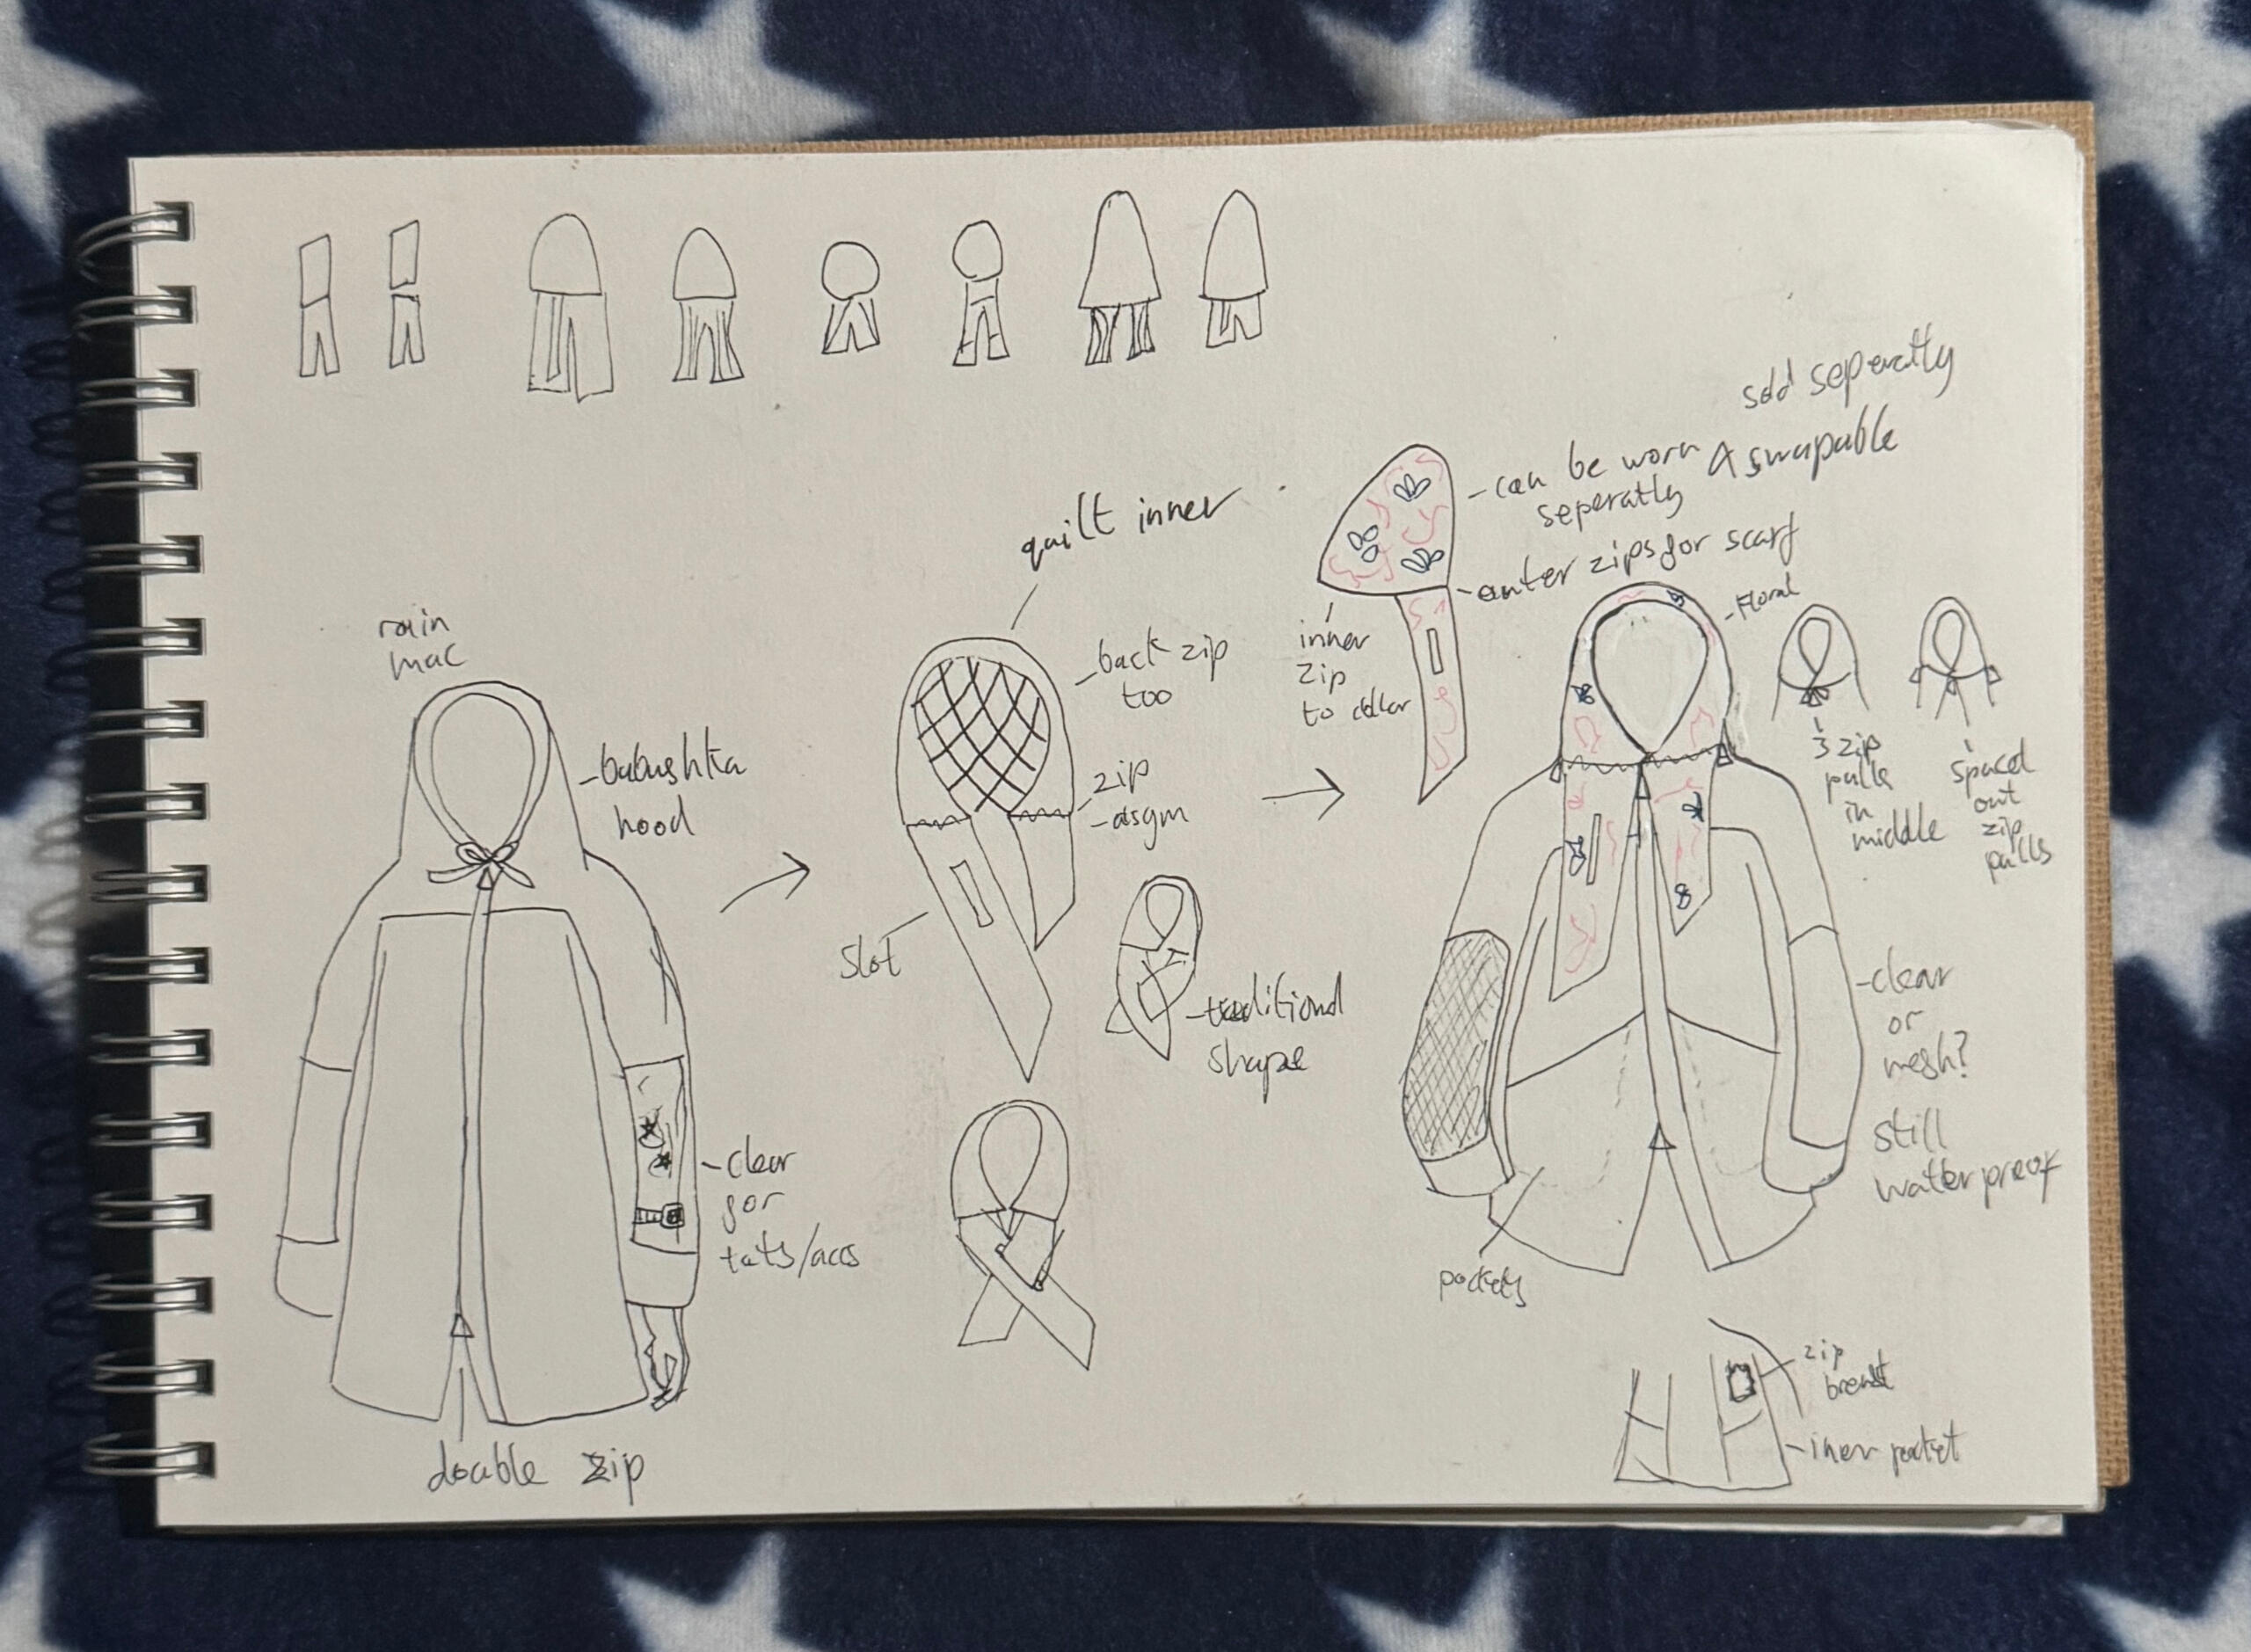 rain
mac
-babushka
hood
-clear
for
tats/accs
double zip
quilt inner
-back zip
too
zip
-asym
slot
-traditional
shape
sold seperatly
-can be worn & swapable
seperatly
-outer zips for scarf
inner
zip
to collar
-floral
3 zip
pulls
in
middle
spaced
out
zip
pulls
-clear
or
mesh?
still
waterproof
pockets
zip
breast
-iner pocket